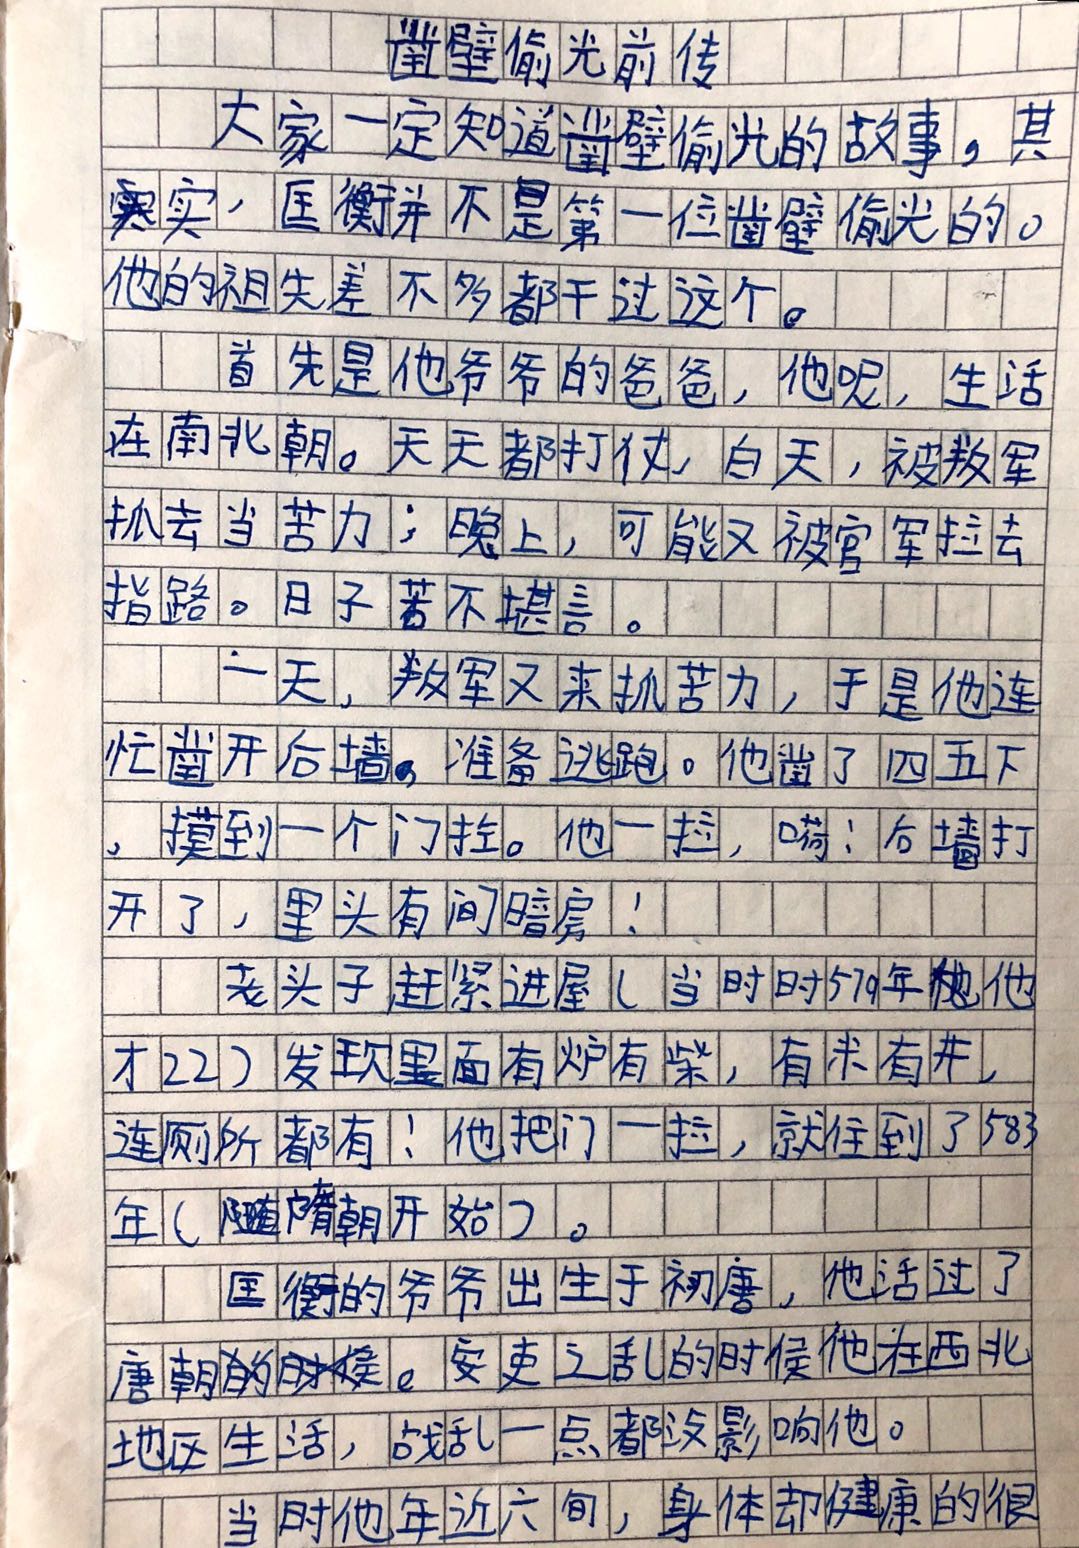 凿壁偷光前传
大家一定知道凿壁偷光的故事，其
实，匡衡并不是第一位凿壁偷光的。
他的祖先差不多都干过这个。
首先是他爷爷的爸爸，他呢，生活
在南北朝。天天都打仗，白天，被叛军
抓去当苦力；晚上，可能又被官军拉去
指路。日子苦不堪言。
一天，叛军又来抓苦力，于是他连
忙凿开后墙，准备逃跑。他凿了四五下
，摸到一个门拴。他一拉，嗬！后墙打
开了，里头有间暗房！
老头子赶紧进屋（当时时579年他
才22）发现里面有炉有柴，有米有井，
连厕所都有！他把门一拉，就住到了583
年（隋朝开始）。
匡衡的爷爷出生于初唐，他活过了
唐朝。安吏之乱的时侯他在西北
地区生活，战乱一点都没影响他。
当时他年近六旬，身体却健康的很